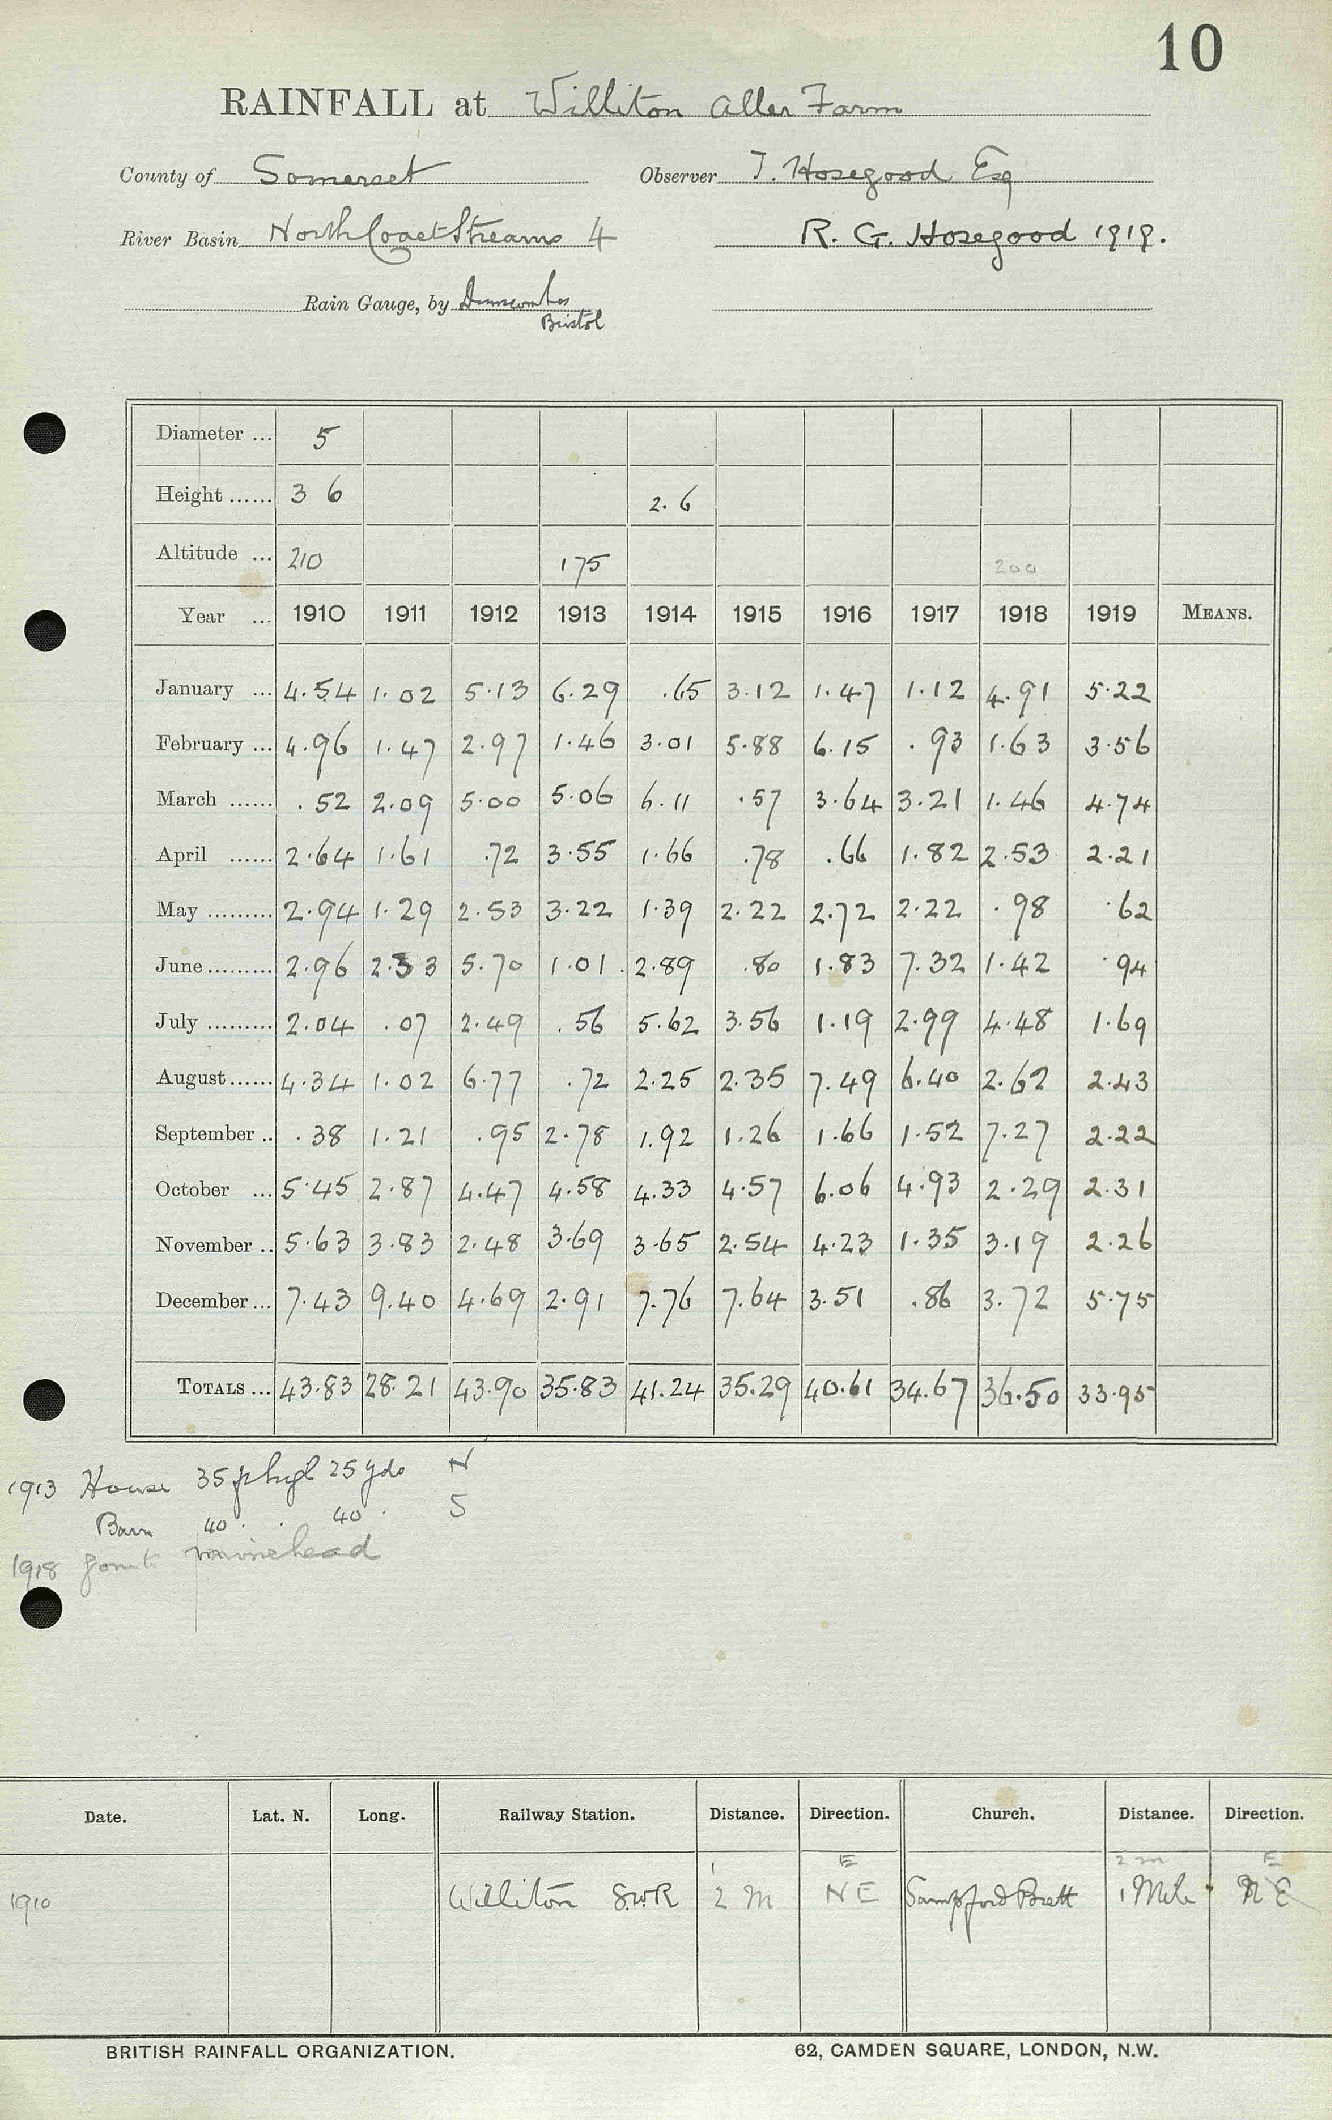 10
RAINFALL at Williton Aller Farm
County of Somerset Observer T. Hosegood Esq
River Basin North Coast Streams 4 R. G. Hosegood 1919.
Rain Gauge, by Dunscombes
Bristol
Diameter ... 5
Height ...... 3 6 2.6
Altitude ... 210 175 200
Year ... 1910 1911 1912 1913 1914 1915 1916 1917 1918 1919 MEANS.
January ... 4.54 1.02 5.13 6.29 .65 3.12 1.47 1.12 4.91 5.22
February ... 4.96 1.47 2.97 1.46 3.01 5.88 6.15 .93 1.63 3.56
March ...... .52 2.09 5.00 5.06 6.11 .57 3.64 3.21 1.46 4.74
April ...... 2.64 1.61 .72 3.55 1.66 .78 .66 1.82 2.53 2.21
May ......... 2.94 1.29 2.53 3.22 1.39 2.22 2.72 2.22 .98 .62
June ......... 2.96 2.33 5.70 1.01 2.89 .80 1.83 7.32 1.42 .94
July ......... 2.04 .07 2.49 .56 5.62 3.56 1.19 2.99 4.48 1.69
August ...... 4.34 1.02 6.77 .72 2.25 2.35 7.49 6.40 2.62 2.43
September .. .38 1.21 .95 2.78 1.92 1.26 1.66 1.52 7.27 2.22
October ... 5.45 2.87 4.47 4.58 4.33 4.57 6.06 4.93 2.29 2.31
November .. 5.63 3.83 2.48 3.69 3.65 2.54 4.23 1.35 3.19 2.26
December ... 7.43 9.40 4.69 2.91 7.76 7.64 3.51 .86 3.72 5.75
TOTALS ... 43.83 28.21 43.90 35.83 41.24 35.29 40.61 34.67 36.50 33.95
1913 House 35 high 25 yds N
Barn 40 . 40 . S
1918 minehead
Date. Lat. N. Long. Railway Station. Distance. Direction. Church. Distance. Direction.
1 E 2 m E
1910 Williton G.W.R 2 m NE Sampford Brett 1 Mile NE
BRITISH RAINFALL ORGANIZATION. 62, CAMDEN SQUARE, LONDON, N.W.